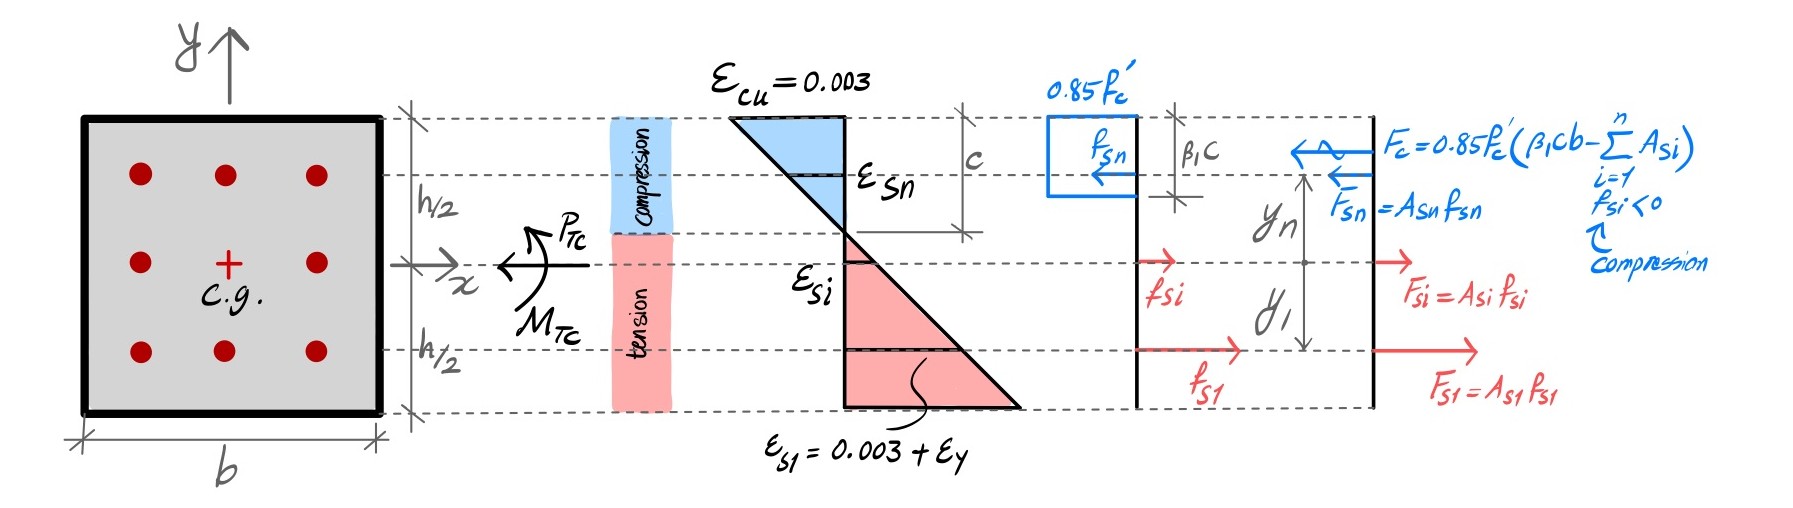 y
x
c.g.
b
h/2
h/2
P_TC
M_TC
compression
tension
ε_cu = 0.003
ε_sn
ε_si
ε_s1 = 0.003 + ε_y
c
0.85f'_c
f_sn
β₁c
f_si
f_s1
F_c = 0.85f'_c(β₁cb − Σ A_si)
n
i=1
f_si < 0
compression
F_sn = A_sn f_sn
y_n
y_1
F_si = A_si f_si
F_s1 = A_s1 f_s1